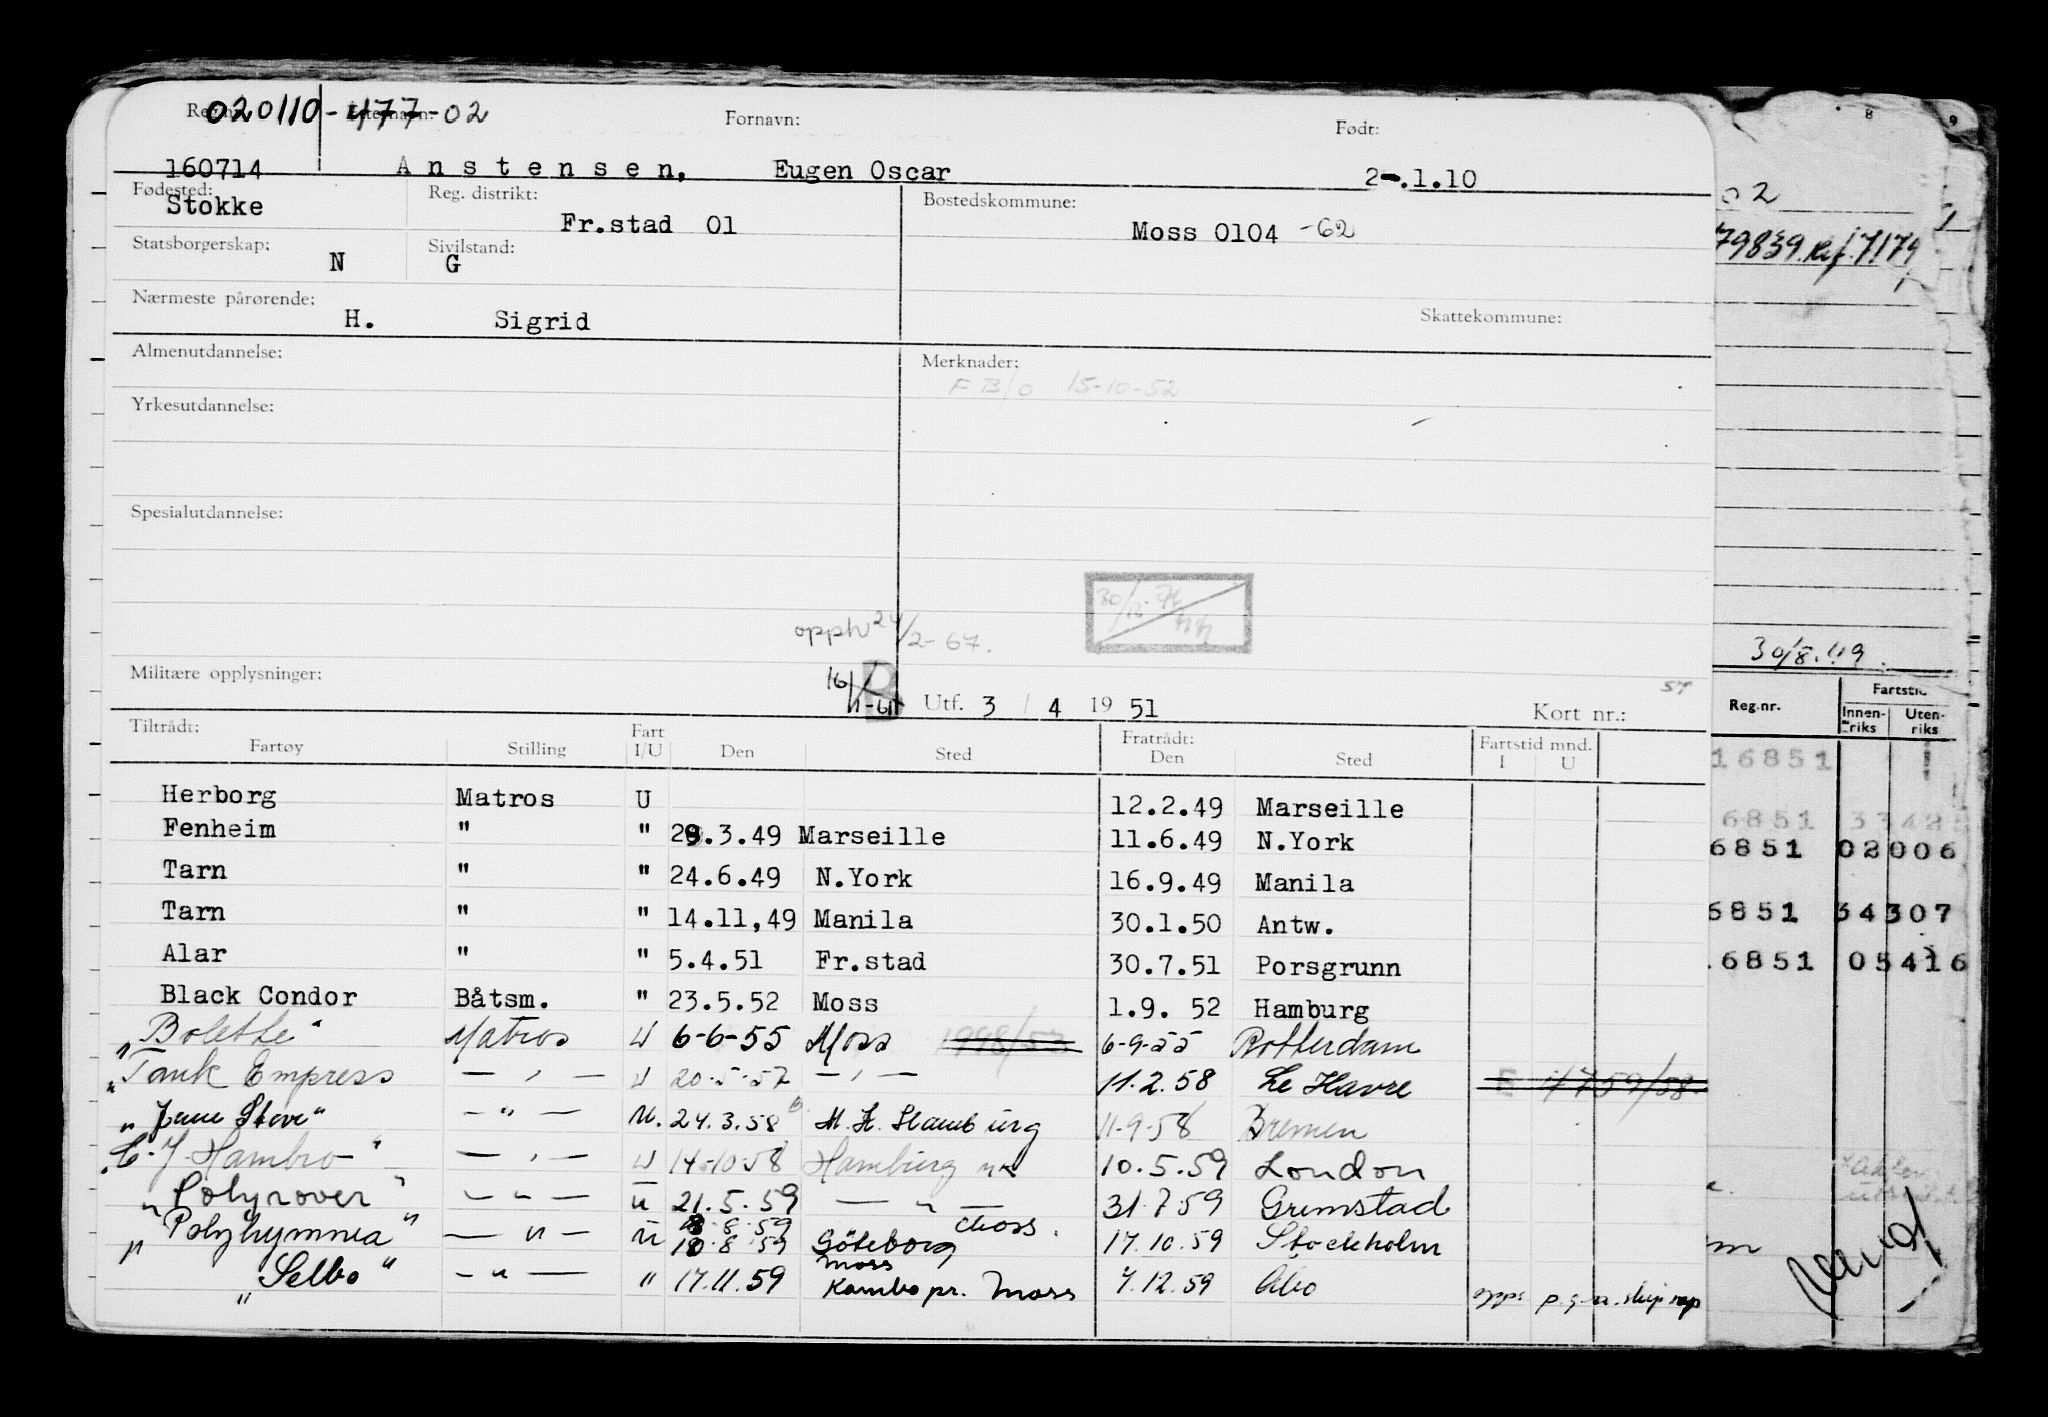 020110-477-02
Fornavn: Født:
160714 Anstensen, Eugen Oscar 2-.1.10
Fødested: Reg. distrikt: Bostedskommune:
Stokke Fr.stad 01 Moss 0104 -62
Statsborgerskap: Sivilstand:
N G
Nærmeste pårørende: Skattekommune:
H. Sigrid
Almenutdannelse: Merknader:
F B/o 15-10-52
Yrkesutdannelse:
Spesialutdannelse:
opph 24/2-67.
30/8.49.
Militære opplysninger:
Utf. 3 / 4 19 51 Kort nr.:
Reg.nr. Fartstid
Innen-riks Uten-riks
Tiltrådt: Fratrådt: Fartstid mnd.
Fartøy Stilling Fart I/U Den Sted Den Sted I U
Herborg Matros U 12.2.49 Marseille
Fenheim " " 29.3.49 Marseille 11.6.49 N.York
Tarn " " 24.6.49 N.York 16.9.49 Manila
Tarn " " 14.11,49 Manila 30.1.50 Antw.
Alar " " 5.4.51 Fr.stad 30.7.51 Porsgrunn
Black Condor Båtsm. " 23.5.52 Moss 1.9. 52 Hamburg
"Bolette" Matros U 6-6-55 Moss 6-9-55 Rotterdam
"Tank Empress — " — U 20-5-57 — " — 11.2.58 Le Havre
" Stove" — " — U. 24.3.58 Hamburg 11-9-58 Bremen
"C. J. Hambro" — " — U 14-10-58 Hamburg 10.5.59 London
"Polyrover" — " — U 21.5.59 — " — 31.7.59 Grimstad
8.8.59 Moss.
"Polyhymnia" — " — U 10.8.59 Göteborg 17.10.59 Stockholm
Moss
"Selbo" — " — " 17.11.59 Kambo pr. Moss 7.12.59 Åbo
16851
6851
6851 02006
6851 34307
.6851 05416